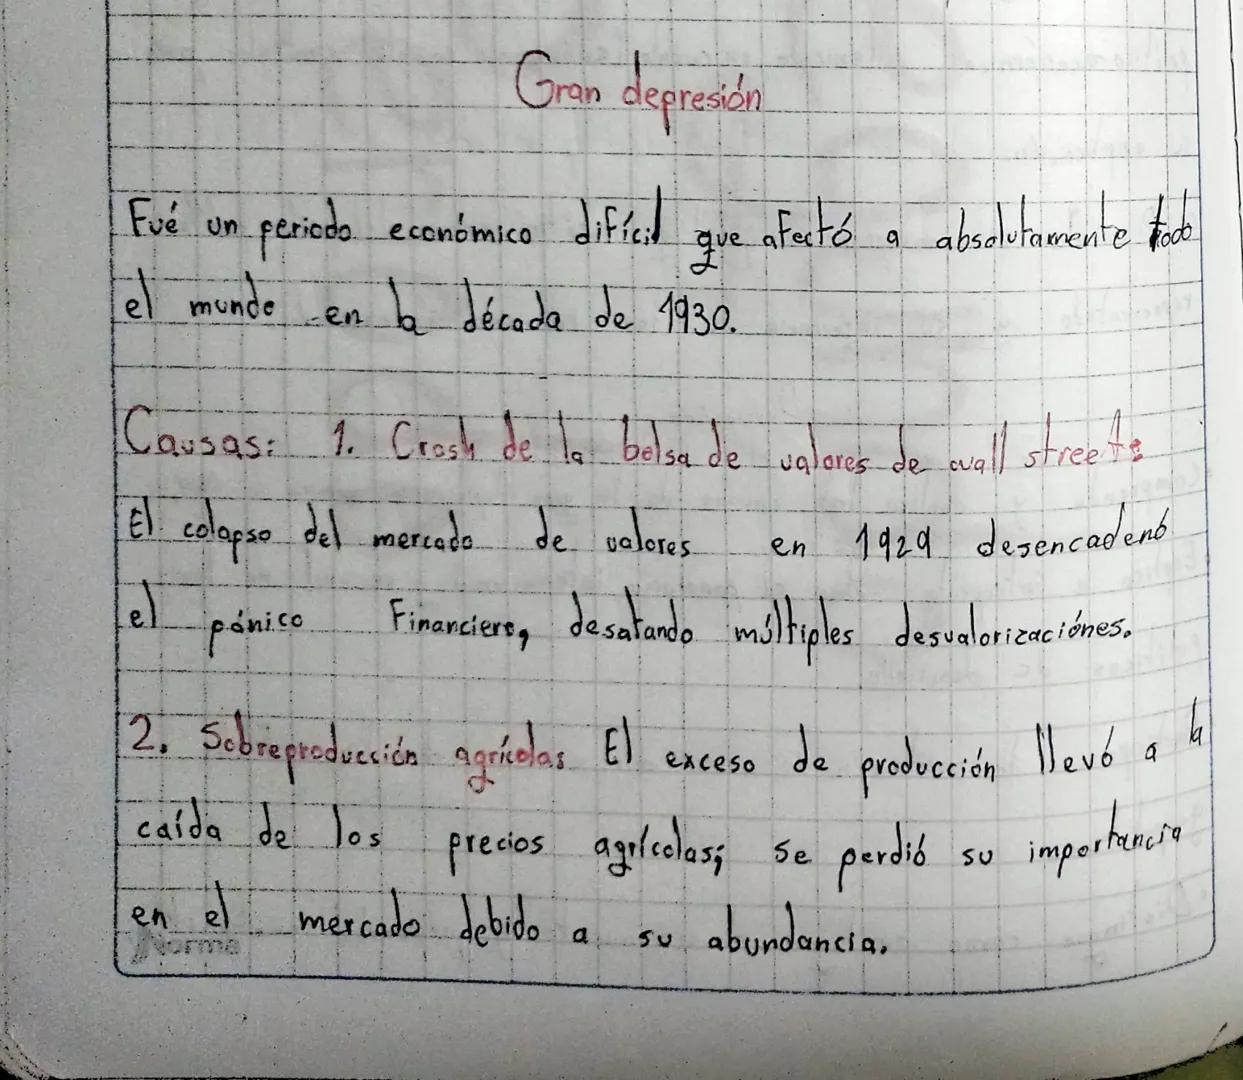 Gran depresión
Fué un periodo económico difícil que afectó a absolutamente todo
el mundo en la década de 1930.
Causas: 1. Crash de la bolsa de valores de wall streets
El colapso del mercado de valores en 1929 desencadenó
el pánico Financiero, desatando múltiples desvalorizaciónes.
2. Sobreproducción agrícolas El exceso de producción llevó a la
caída de los precios agrícolas; se perdió su importancia
en el mercado debido a su abundancia.
Norma